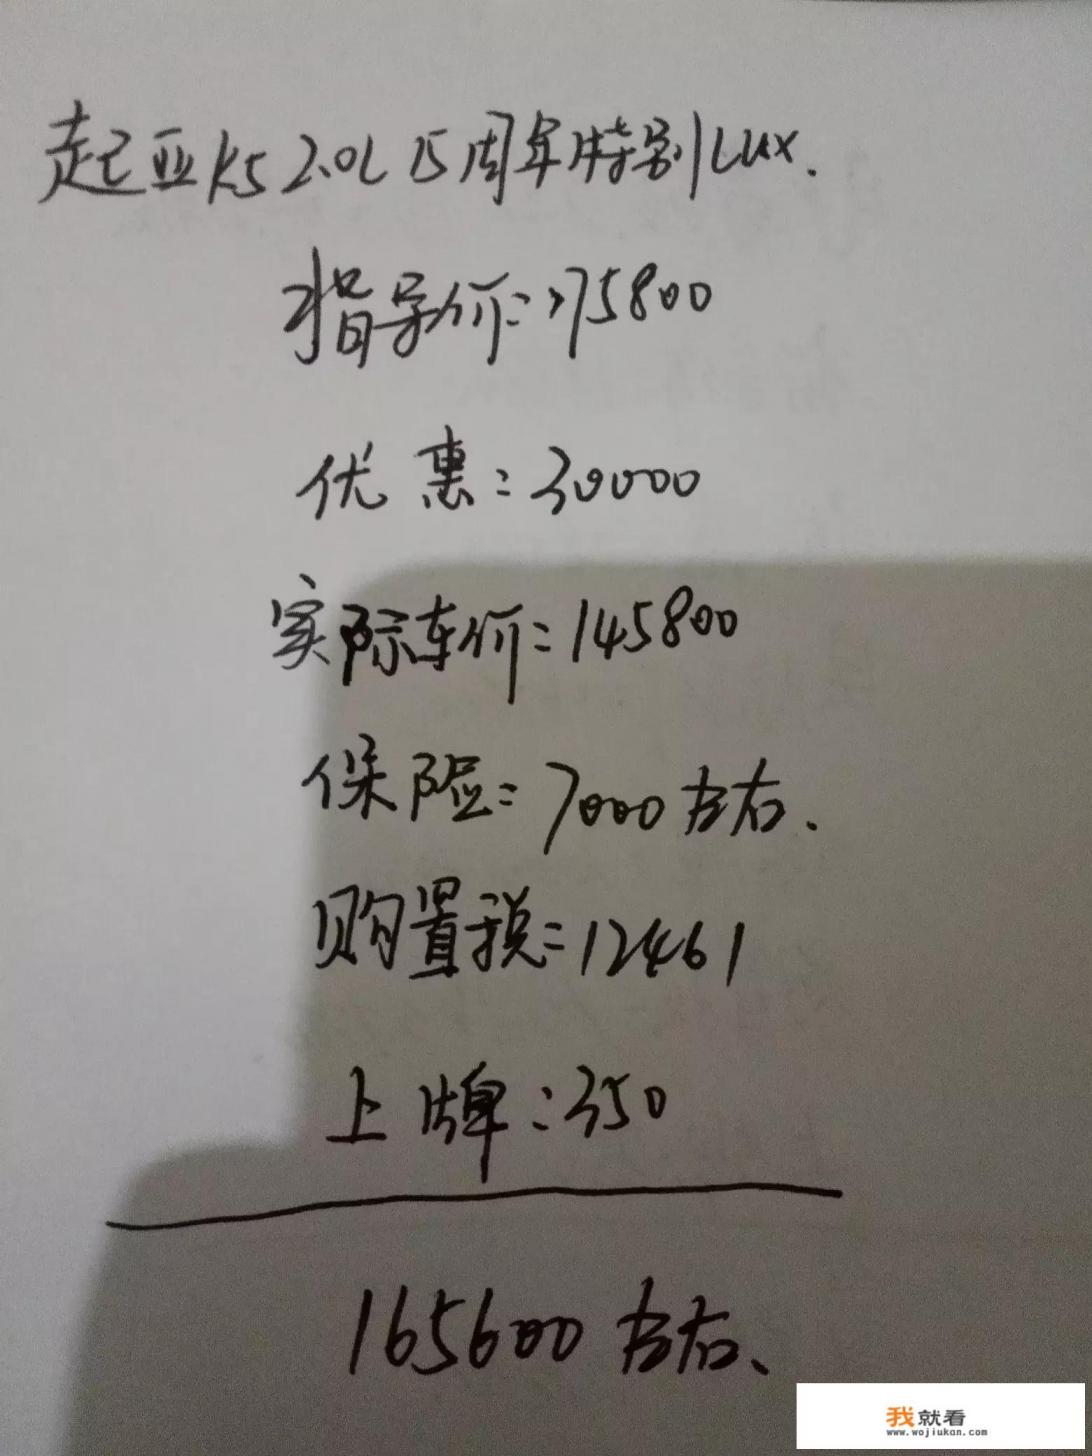 起亚K5 2.0L 15周年特别LUX.
指导价:175800
优惠:30000
实际车价:145800
保险:7000左右.
购置税:12461
上牌:350
165600左右、
我就看
www.wojiukan.com